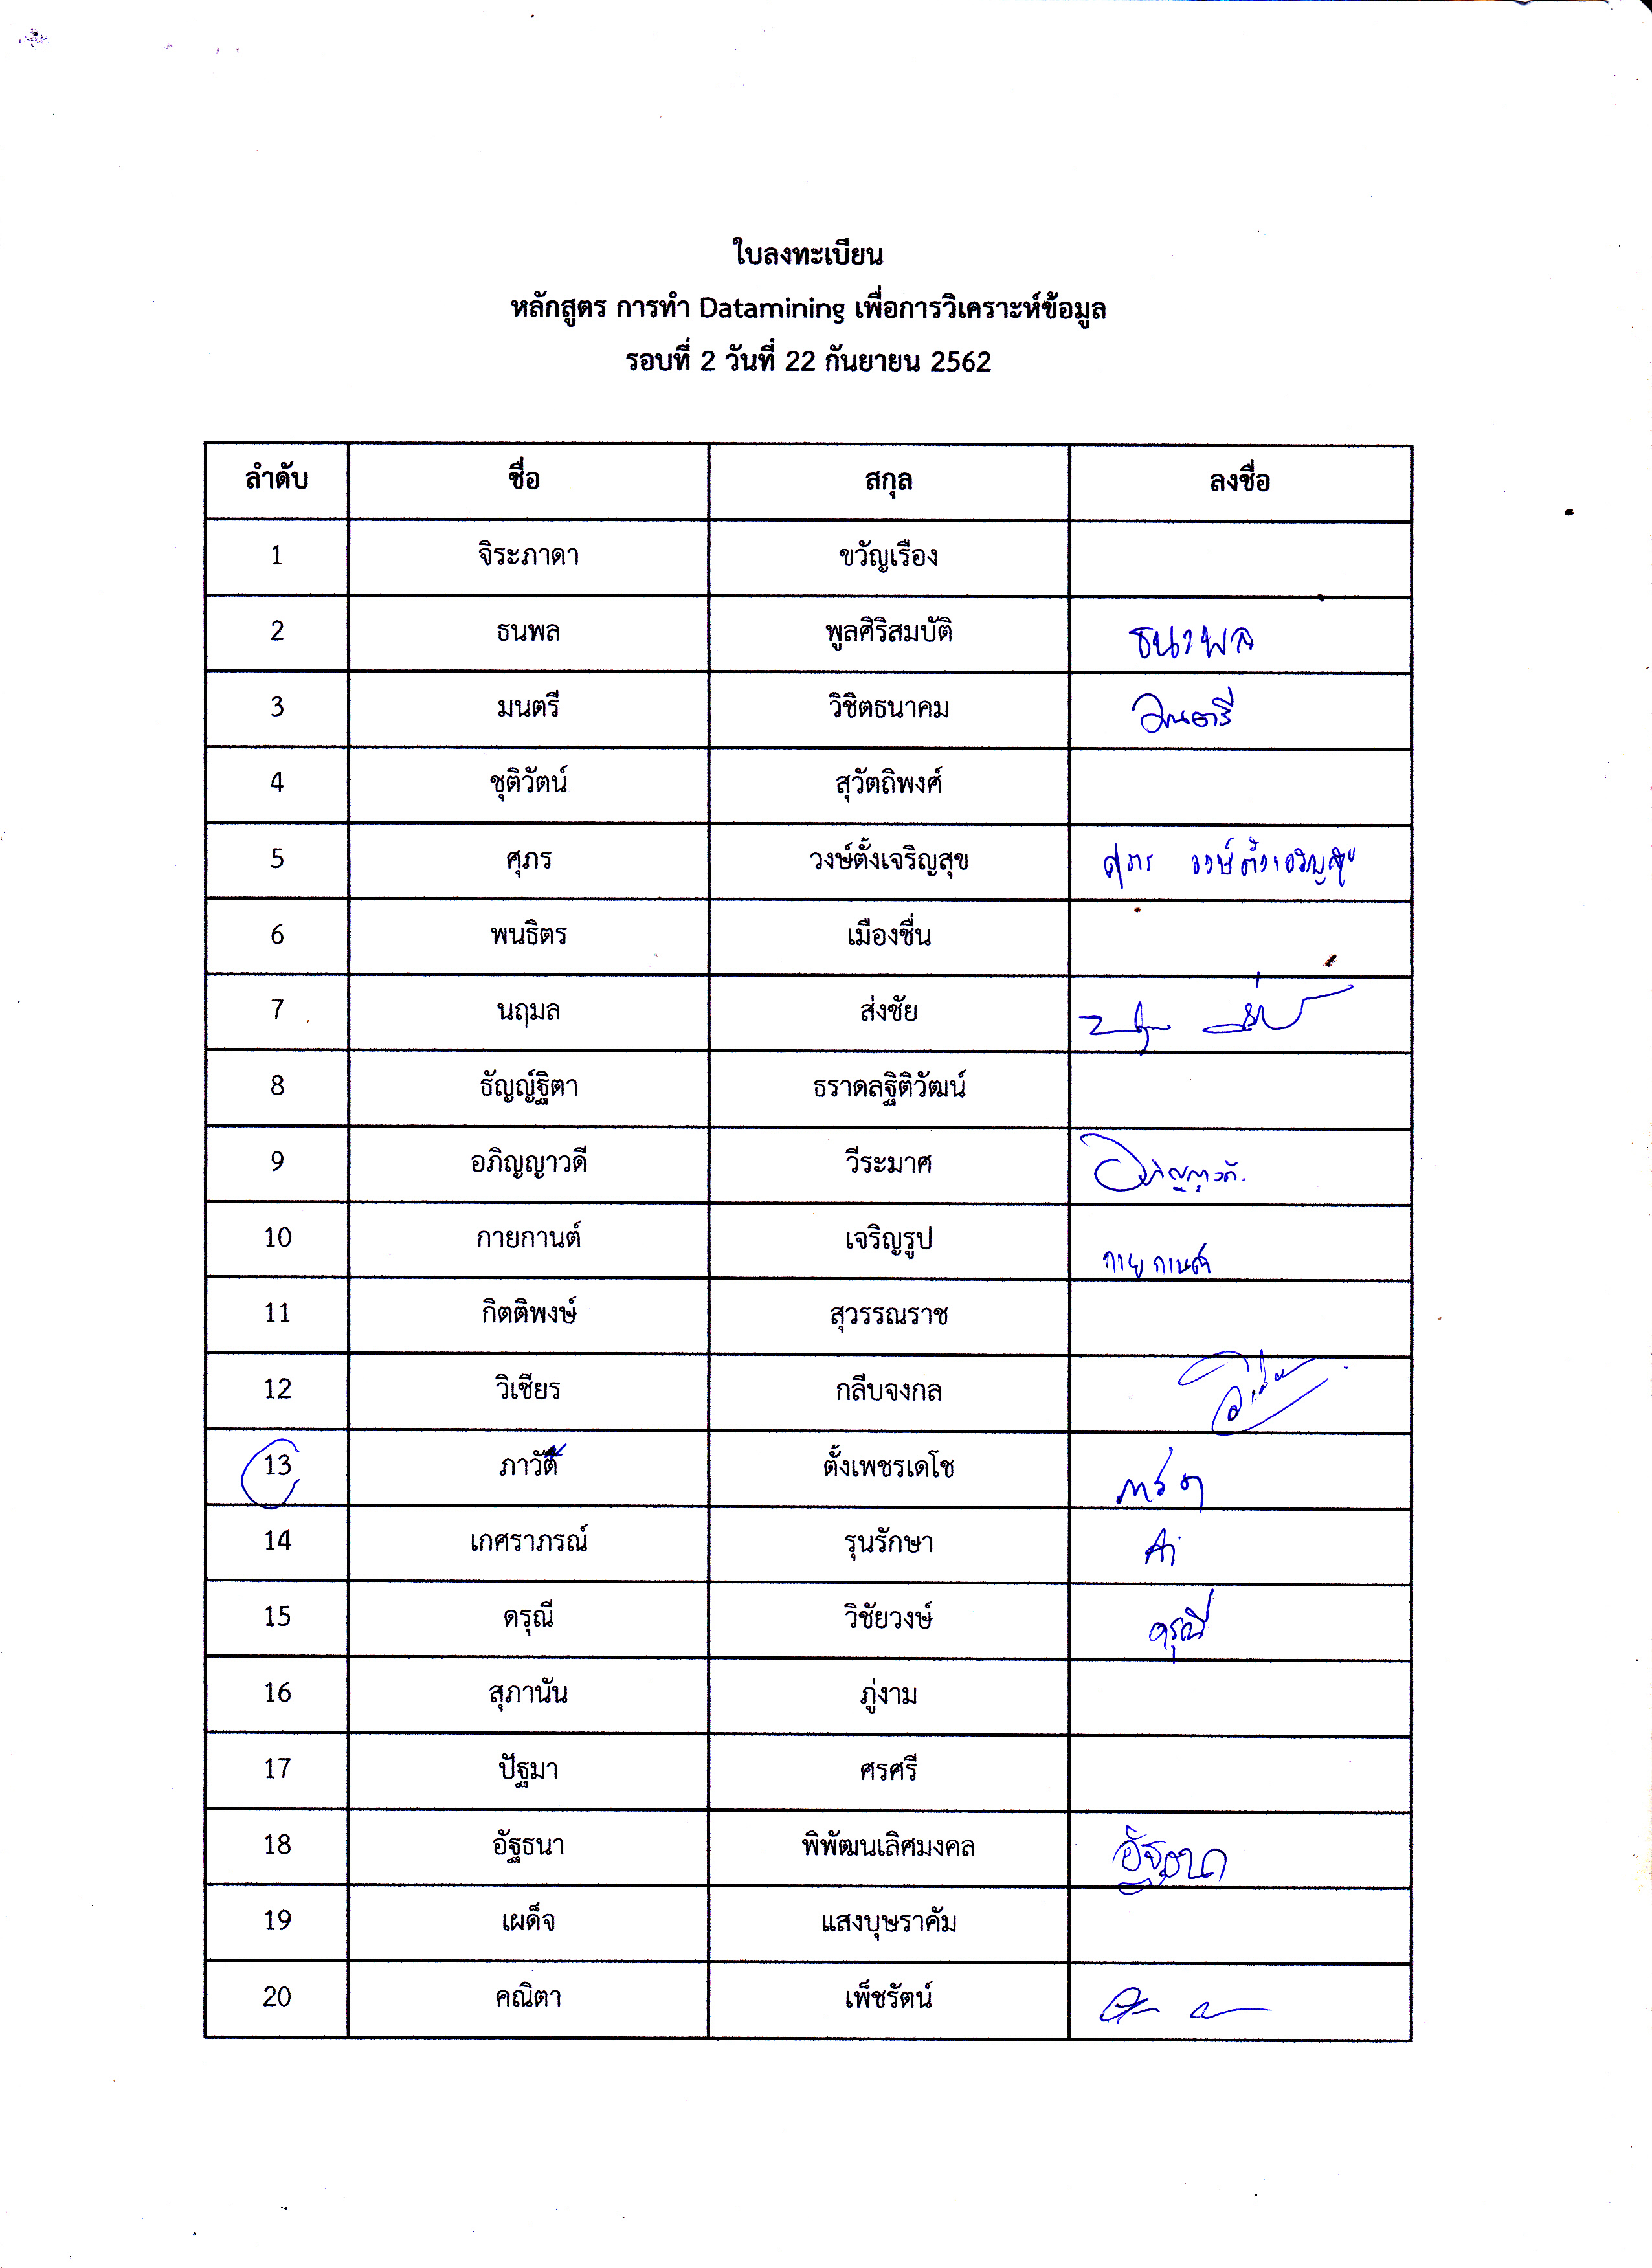 ใบลงทะเบียน
หลักสูตร การทำ Datamining เพื่อการวิเคราะห์ข้อมูล
รอบที่ 2 วันที่ 22 กันยายน 2562
ลำดับ ชื่อ สกุล ลงชื่อ
1 จิระภาดา ขวัญเรือง
2 ธนพล พูลศิริสมบัติ ธนาพล
3 มนตรี วิชิตธนาคม มนตรี
4 ชุติวัตน์ สุวัตถิพงศ์
5 ศุภร วงษ์ตั้งเจริญสุข ศุภร วงษ์ตั้งเจริญสุข
6 พนธิตร เมืองชื่น
7 นฤมล ส่งชัย
8 ธัญญ์ฐิตา ธราดลฐิติวัฒน์
9 อภิญญาวดี วีระมาศ อภิญญาวดี
10 กายกานต์ เจริญรูป กายกานต์
11 กิตติพงษ์ สุวรรณราช
12 วิเชียร กลีบจงกล
13 ภาวัต ตั้งเพชรเดโช
14 เกศราภรณ์ รุนรักษา
15 ดรุณี วิชัยวงษ์ ดรุณี
16 สุภานัน ภู่งาม
17 ปัฐมา ศรศรี
18 อัฐธนา พิพัฒนเลิศมงคล อัฐธนา
19 เผด็จ แสงบุษราคัม
20 คณิตา เพ็ชรัตน์